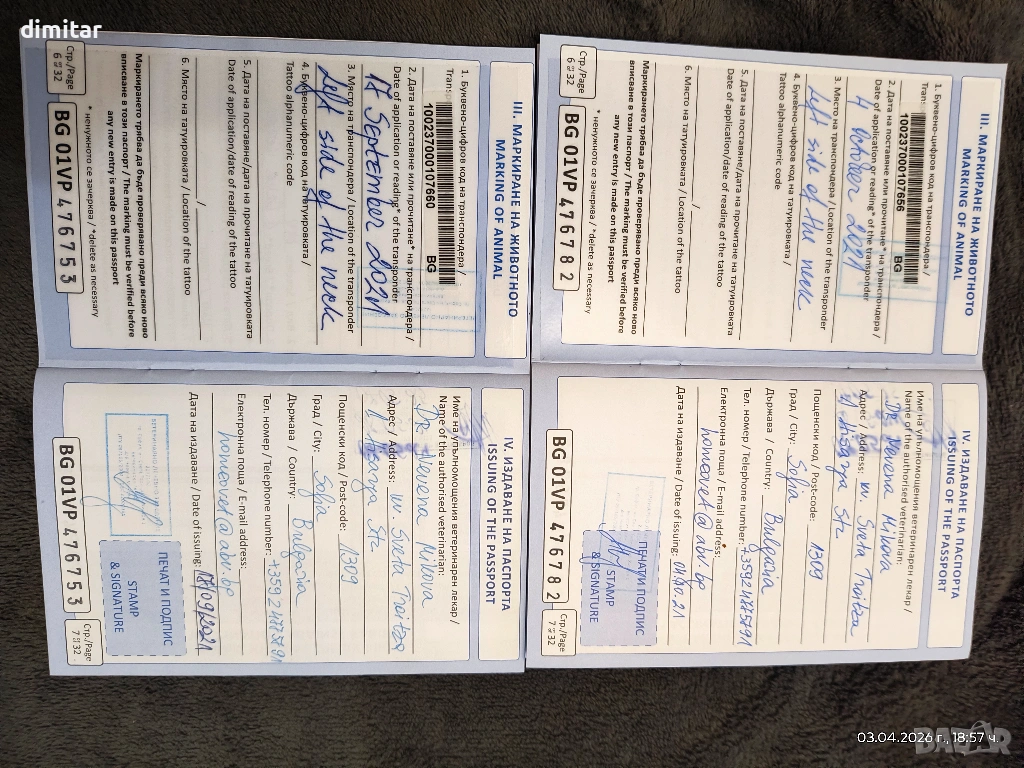 dimitar
III. МАРКИРАНЕ НА ЖИВОТНОТО
MARKING OF ANIMAL
1. Буквено-цифров код на транспондера /
Tran
100237000107660 BG
2. Дата на поставяне или прочитане* на транспондера /
Date of application or reading* of the transponder
17 September 2021
3. Място на транспондера / Location of the transponder
Left side of the neck
4. Буквено-цифров код на татуировката /
Tattoo alphanumeric code
5. Дата на поставяне/дата на прочитане на татуировката
Date of application/date of reading of the tattoo
/
6. Място на татуировката / Location of the tattoo
Маркирането трябва да бъде проверявано преди всяко ново
вписване в този паспорт / The marking must be verified before
any new entry is made on this passport
* ненужното се зачерква / *delete as necessary
Стр./Page
6 от 32
BG 01VP 476753
IV. ИЗДАВАНЕ НА ПАСПОРТА
ISSUING OF THE PASSPORT
Име на упълномощения ветеринарен лекар /
Name of the authorised veterinarian:
DR Nevena Mikova
Адрес / Address: m. Sveta Troitsa
Str
Пощенски код / Post-code: 1309
Град / City: Sofia
Държава / Country: Bulgaria
Тел. номер / Telephone number:
Електронна поща / E-mail address:
homeovet@abv.bg
Дата на издаване / Date of issuing: 17/09/2021
ПЕЧАТ И ПОДПИС
STAMP
& SIGNATURE
BG 01VP 476753
Стр./Page
7 от 32
III. МАРКИРАНЕ НА ЖИВОТНОТО
MARKING OF ANIMAL
1. Буквено-цифров код на транспондера /
Tran
100237000107656 BG
2. Дата на поставяне или прочитане* на транспондера /
Date of application or reading* of the transponder
4 October 2021
3. Място на транспондера / Location of the transponder
Left side of the neck
4. Буквено-цифров код на татуировката /
Tattoo alphanumeric code
5. Дата на поставяне/дата на прочитане на татуировката
Date of application/date of reading of the tattoo
/
6. Място на татуировката / Location of the tattoo
Маркирането трябва да бъде проверявано преди всяко ново
вписване в този паспорт / The marking must be verified before
any new entry is made on this passport
* ненужното се зачерква / *delete as necessary
Стр./Page
6 от 32
BG 01VP 476782
IV. ИЗДАВАНЕ НА ПАСПОРТА
ISSUING OF THE PASSPORT
Име на упълномощения ветеринарен лекар /
Name of the authorised veterinarian:
DR Nevena Mikova
Адрес / Address: m. Sveta Troitsa
str
Пощенски код / Post-code: 1309
Град / City: Sofia
Държава / Country: Bulgaria
Тел. номер / Telephone number:
Електронна поща / E-mail address:
homeovet@abv.bg
Дата на издаване / Date of issuing:
ПЕЧАТ И ПОДПИС
STAMP
& SIGNATURE
BG 01VP 476782
Стр./Page
7 от 32
03.04.2026 г., 18:57 ч.
BAZAR